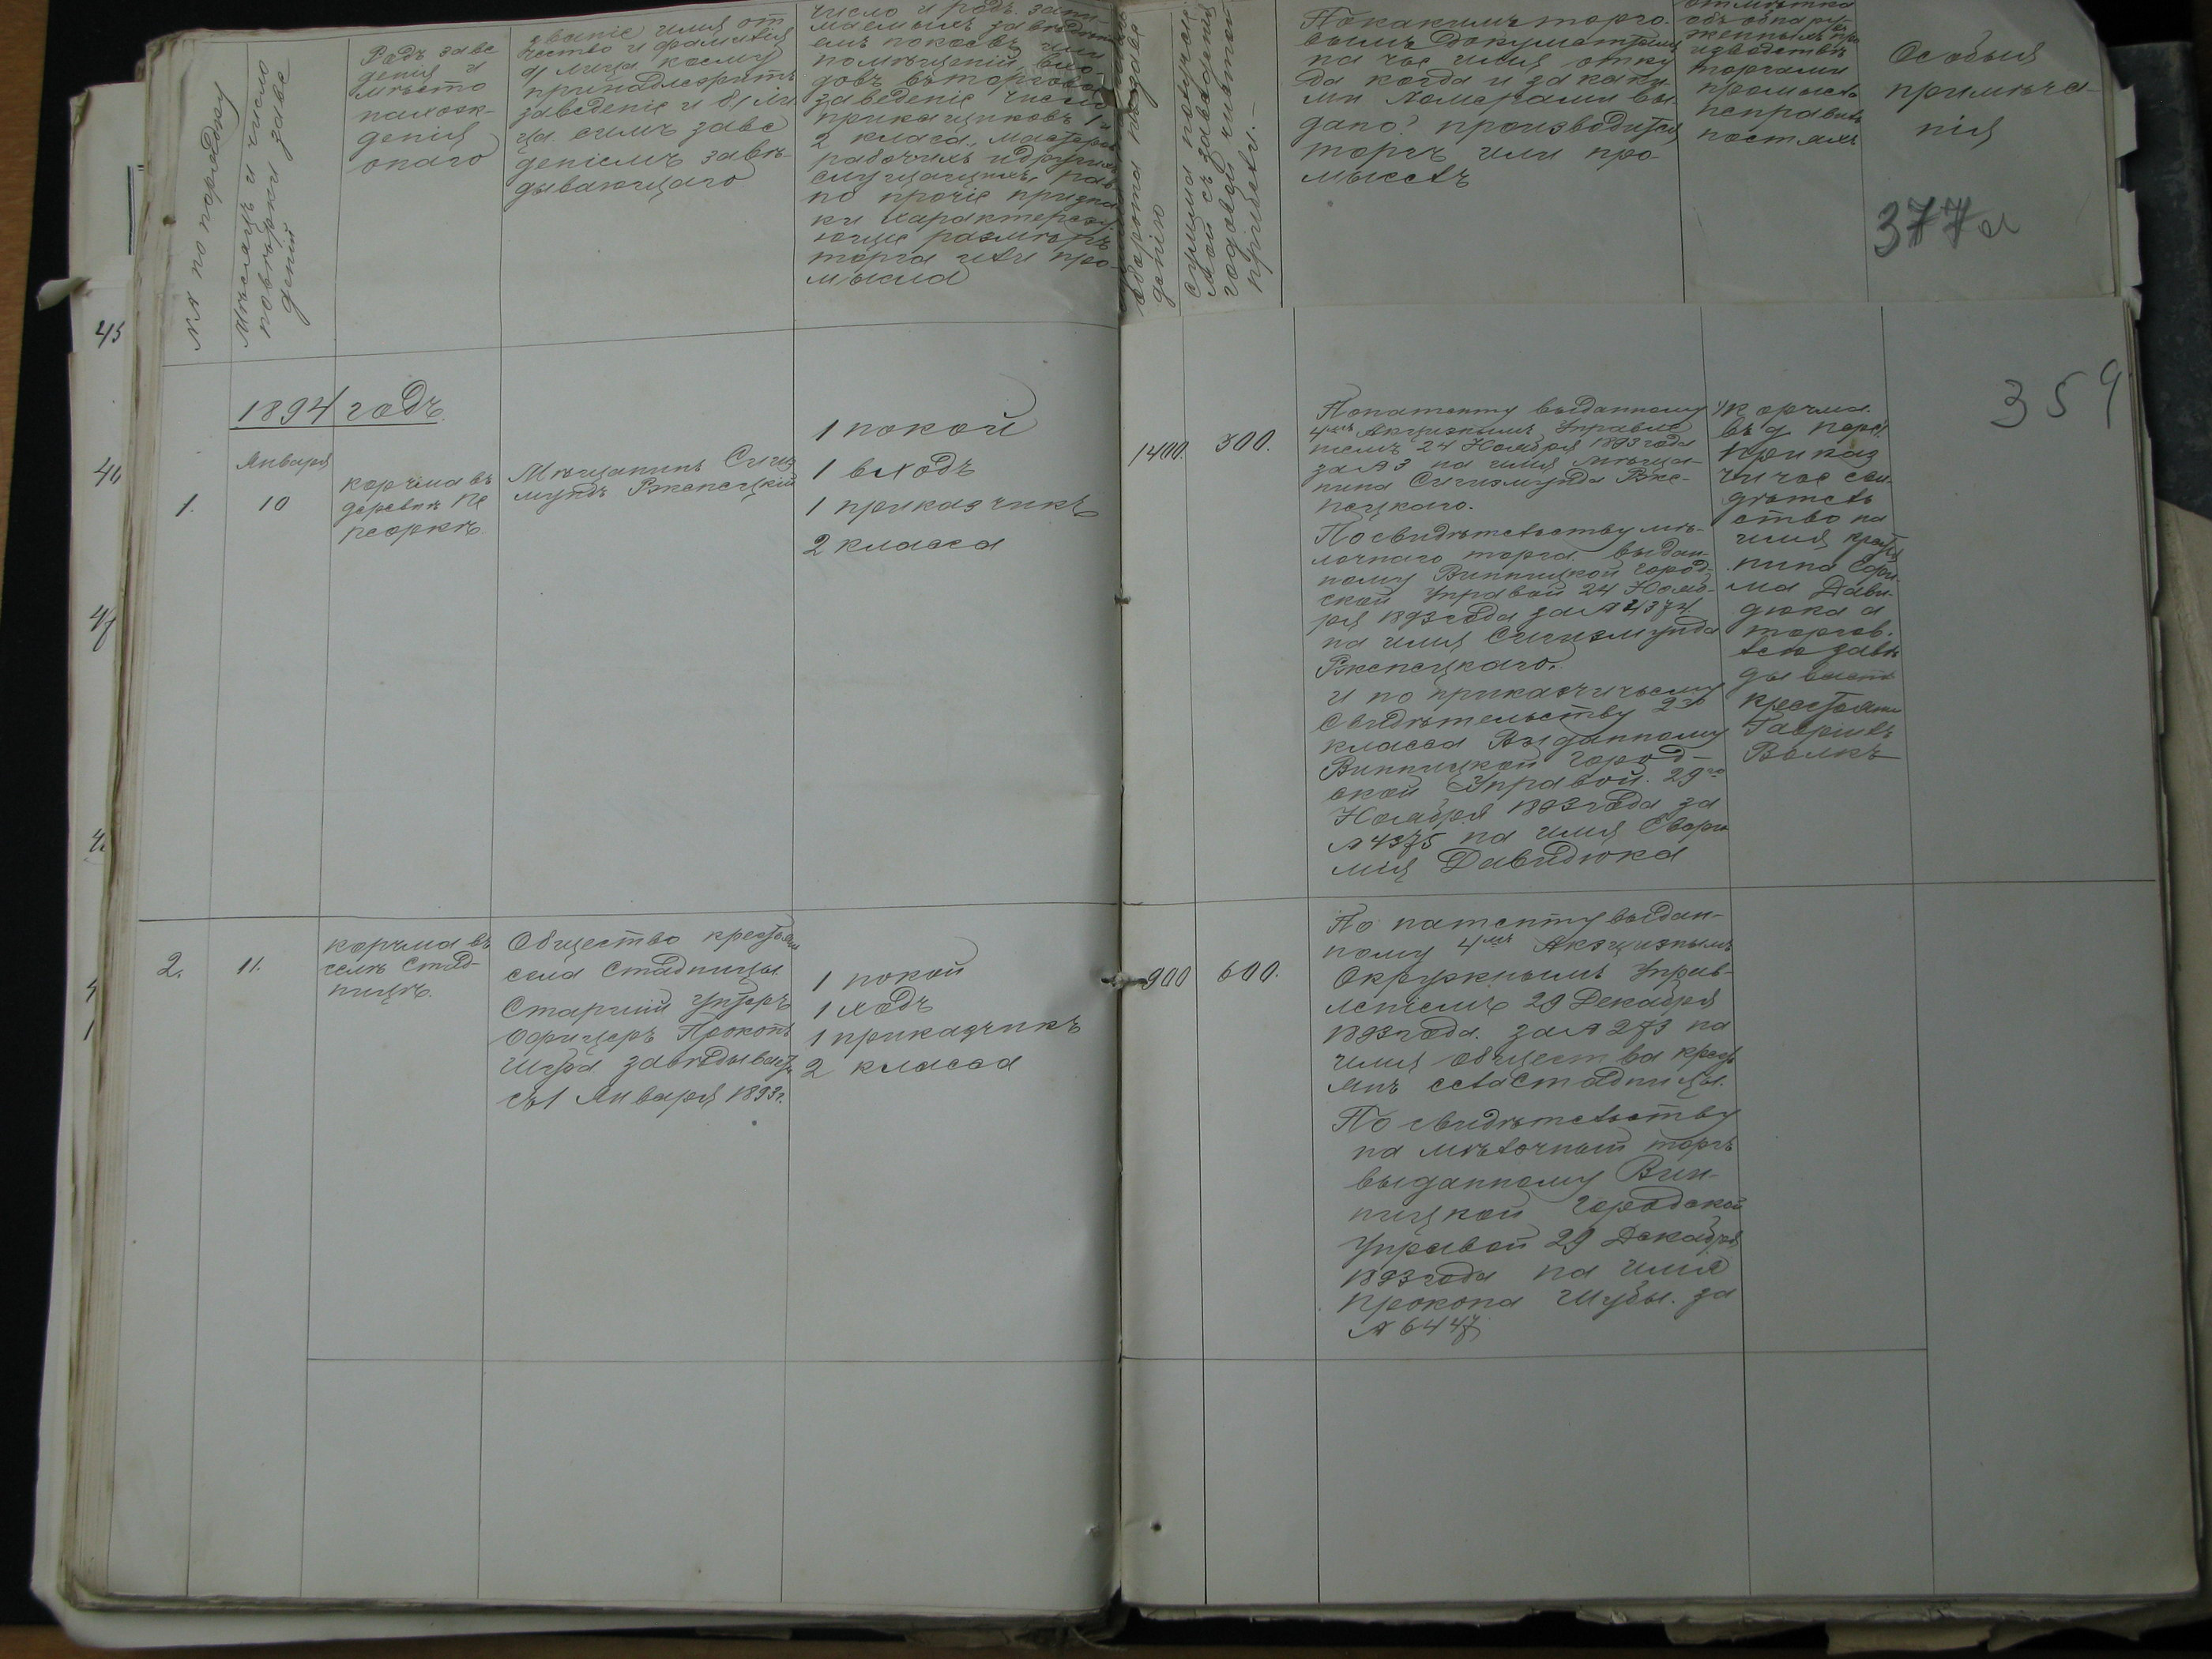 №№ по порядку
Мѣсяцъ и число
повѣрки заве
деній
Родъ заве
денія и
мѣсто
нахож-
денія
онаго
званіе имя от
чество и фамилія
а) лица коему
принадлежитъ
заведеніе и б) ли
ца симъ заве
деніемъ завѣ-
дывающаго
число и родъ зани
маемыхъ заведені
емъ покоевъ или
помѣщеній, вхо-
довъ въ торговое
заведеніе число
прикащиковъ 1 и
2 класса, мастеровъ
рабочихъ и другихъ
служащихъ, рав-
но прочіе призна
ки характеризу
ющіе размѣръ
торга или про-
мысла
оборота по заве
денію
Сумма получае
мой съ заведенія
годовой чистой
прибыли.-
По какимъ торго-
вымъ документамъ
на чье имя отку
да когда и за каки
ми номерами вы
дано? производится
торгъ или про-
мыселъ
отмѣтка
объ обнару
женныхъ про
изводствѣ
торгами
промысла
неправиль
ностяхъ
Особыя
примѣча-
нія
377а
359
1894 годъ.
Января
1.
10
корчма въ
деревнѣ Пе
неоркѣ
Мѣщанинъ Сигиз
мундъ Ржепецкій
1 покой
1 входъ
1 приказчикъ
2 класса
1400.
300.
По патенту выданному
4мъ Акцизнымъ Управле
ніемъ 24 Ноября 1893 года
за № 3 на имя мѣща-
нина Сигизмунда Рже-
пецкаго.
По свидѣтельству мѣ-
лочнаго торга выдан-
ному Винницкой город-
ской Управой 24 Нояб-
ря 1893 года за № 4374
на имя Сигизмунда
Ржепецкаго.
и по приказчичьему
Свидѣтельству 2го
класса Выданному
Винницкой Город-
ской Управой. 29го
Ноября 1893 года за
№ 4375 на имя
Давидюка
Корчма
въ д.
приказ
чичое сви-
дѣтель
ство на
имя крестья
нина Ефи-
ма Дави-
дюка а
торгов-
лею завѣ
дываетъ
крестьянинъ
Гавріилъ
Волкъ
2.
11.
корчма въ
селѣ Стад-
ницѣ.
Общество крестьянъ
села Стадницы.
Старшій унтеръ
офицеръ Прокопъ
Шуба завѣдываетъ
съ 1 Января 1893г.
1 покой
1 ходъ
1 приказчикъ
2 класса
900
600.
По патенту выдан-
ному 4мъ Акцизнымъ
Окружнымъ Управ-
леніемъ 29 Декабря
1893 года. за № 273 на
имя общества кресть
янъ села Стадницы.
По свидѣтельству
на мѣлочный торгъ
выданному Вин-
ницкой Городской
Управой 29 Декабря
1893 года на имя
Прокопа Шубы. за
№ 6447